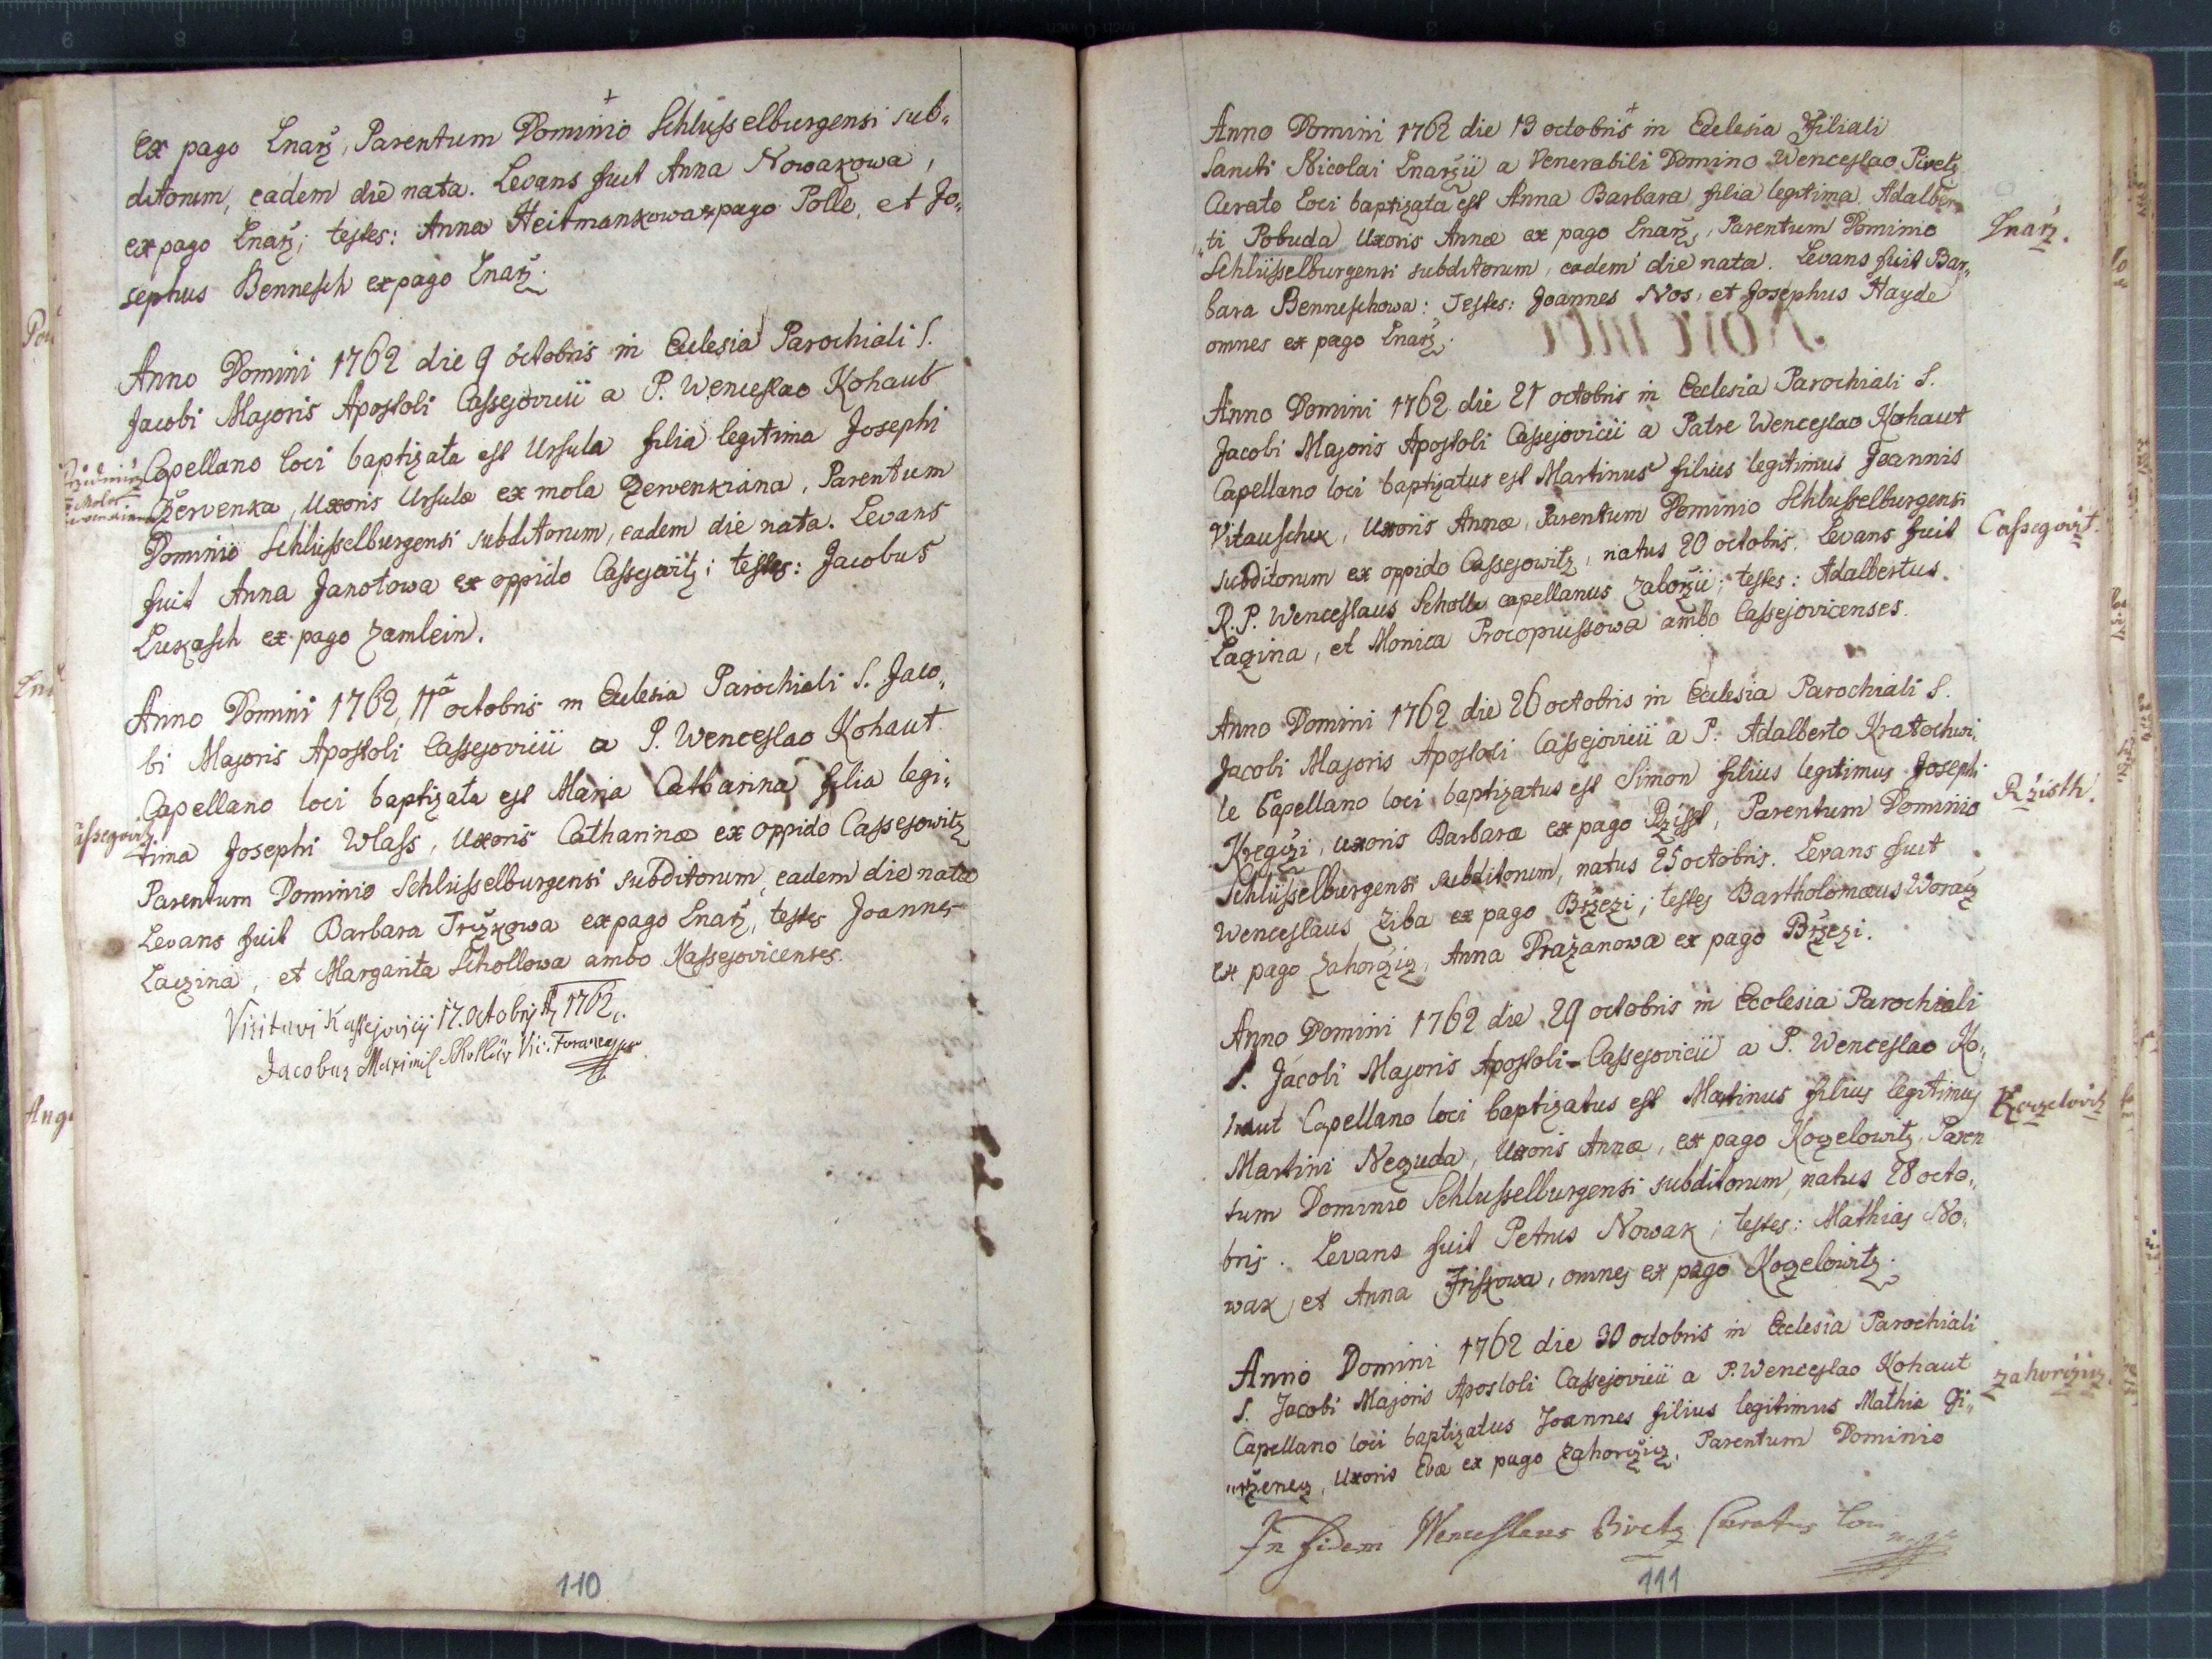 ex pago Lnarz, Parentum Dominio Schlusselburgensi sub„
ditorum, eadem die nata. Levans fuit Anna Nowakowa,
ex pago Lnarz; testes: Anna Heitmankowa ex pago Polle, et Jo„
sephus Bennesch ex pago Lnarz.
Anno Domini 1762 die 9 octobris in Ecclesia Parochiali S.
Jacobi Majoris Apostoli Cassejovicii a P. Wenceslao Kohaut
Capellano loci baptizata est Ursula filia legitima Josephi
Czervenka, Uxoris Ursulæ ex mola Zervenkiana, Parentum
Dominio Schlüsselburgensi subditorum, eadem die nata. Levans
fuit Anna Janotowa ex oppido Cassejowitz; testes: Jacobus
Lukasch ex pago Zamlein.
Anno Domini 1762, 11ª octobris in Ecclesia Parochiali S. Jaco„
bi Majoris Apostoli Cassejovicii a P. Wenceslao Kohaut
Capellano loci baptizata est Maria Catharina filia legi„
assegovitz
tima Josephi Wlass, Uxoris Catharinæ ex oppido Cassejowitz
Parentum Dominio Schlüsselburgensi subditorum, eadem die nata
Levans fuit Barbara Trżkowa ex pago Lnarz, testes Joannes
Laczina, et Margarita Schollowa ambo Kassejovicenses.
Visitavi Kassejovicij 17. octobris A 1762.
Jacobus Maximil
110
Anno Domini 1762 die 13 octobris in Ecclesia Filiali
Sancti Nicolai Lnarzii a Venerabili Domino Wenceslao Pivetz
Curato Loci baptizata est Anna Barbara, filia legitima Adalber
„ti Pobuda Uxoris Annæ ex pago Lnarz, Parentum Dominio
Lnarz.
Schlüsselburgensi subditorum, eadem die nata. Levans fuit Bar„
bara Benneschowa: Testes: Joannes Nos, et Josephus Hayde
omnes ex pago Lnarz.
Anno Domini 1762 die 21 octobris in Ecclesia Parochiali S.
Jacobi Majoris Apostoli Cassejovicii a Patre Wenceslao Kohaut
Capellano loci baptizatus est Martinus filius legitimus Joannis
Vitauschek, Uxoris Annæ, Parentum Dominio Schlusselburgensi
Cassegovit.
subditorum ex oppido Cassejowitz, natus 20 octobris. Levans fuit
R. P. Wenceslaus Scholle capellanus Zaborzii; testes: Adalbertus
Lazina, et Monica Procopiussowa ambo Cassejovicenses.
Anno Domini 1762 die 26 octobris in Ecclesia Parochiali S.
Jacobi Majoris Apostoli Cassejovicii a P. Adalberto Kratochwi„
le Capellano loci baptizatus est Simon filius legitimus Josephi
Rzisth.
Kregczi, uxoris Barbaræ ex pago Rzisst, Parentum Dominio
Schlüsselburgensi subditorum, natus 25 octobris. Levans fuit
Wenceslaus Ziba ex pago Brzezi; testes Bartholomæus Woracz
ex pago Zahorczicz, Anna Prażanowa ex pago Brzezi.
Anno Domini 1762 die 29 octobris in Ecclesia Parochiali
S. Jacobi Majoris Apostoli Cassejovicii a P. Wenceslao Ko„
haut Capellano loci baptizatus est Martinus filius legitimus
Kozelovitz
Martini Nezuda, Uxoris Annæ, ex pago Kozelowitz, Paren
tum Dominio Schlusselburgensi subditorum, natus 28 octo„
bris. Levans fuit Petrus Nowak; testes: Mathias No„
wak, et Anna Friskowa, omnes ex pago Kozelowitz.
Anno Domini 1762 die 30 octobris in Ecclesia Parochiali
S. Jacobi Majoris Apostoli Cassejovicii a P. Wenceslao Kohaut
Zahorczicz.
Capellano loci baptizatus Joannes filius legitimus Mathiæ Gi„
„rzenecz, Uxoris Evæ ex pago Zahorczicz, Parentum Dominio
In fidem Wenceslaus Pivetz Curatus Loci
111